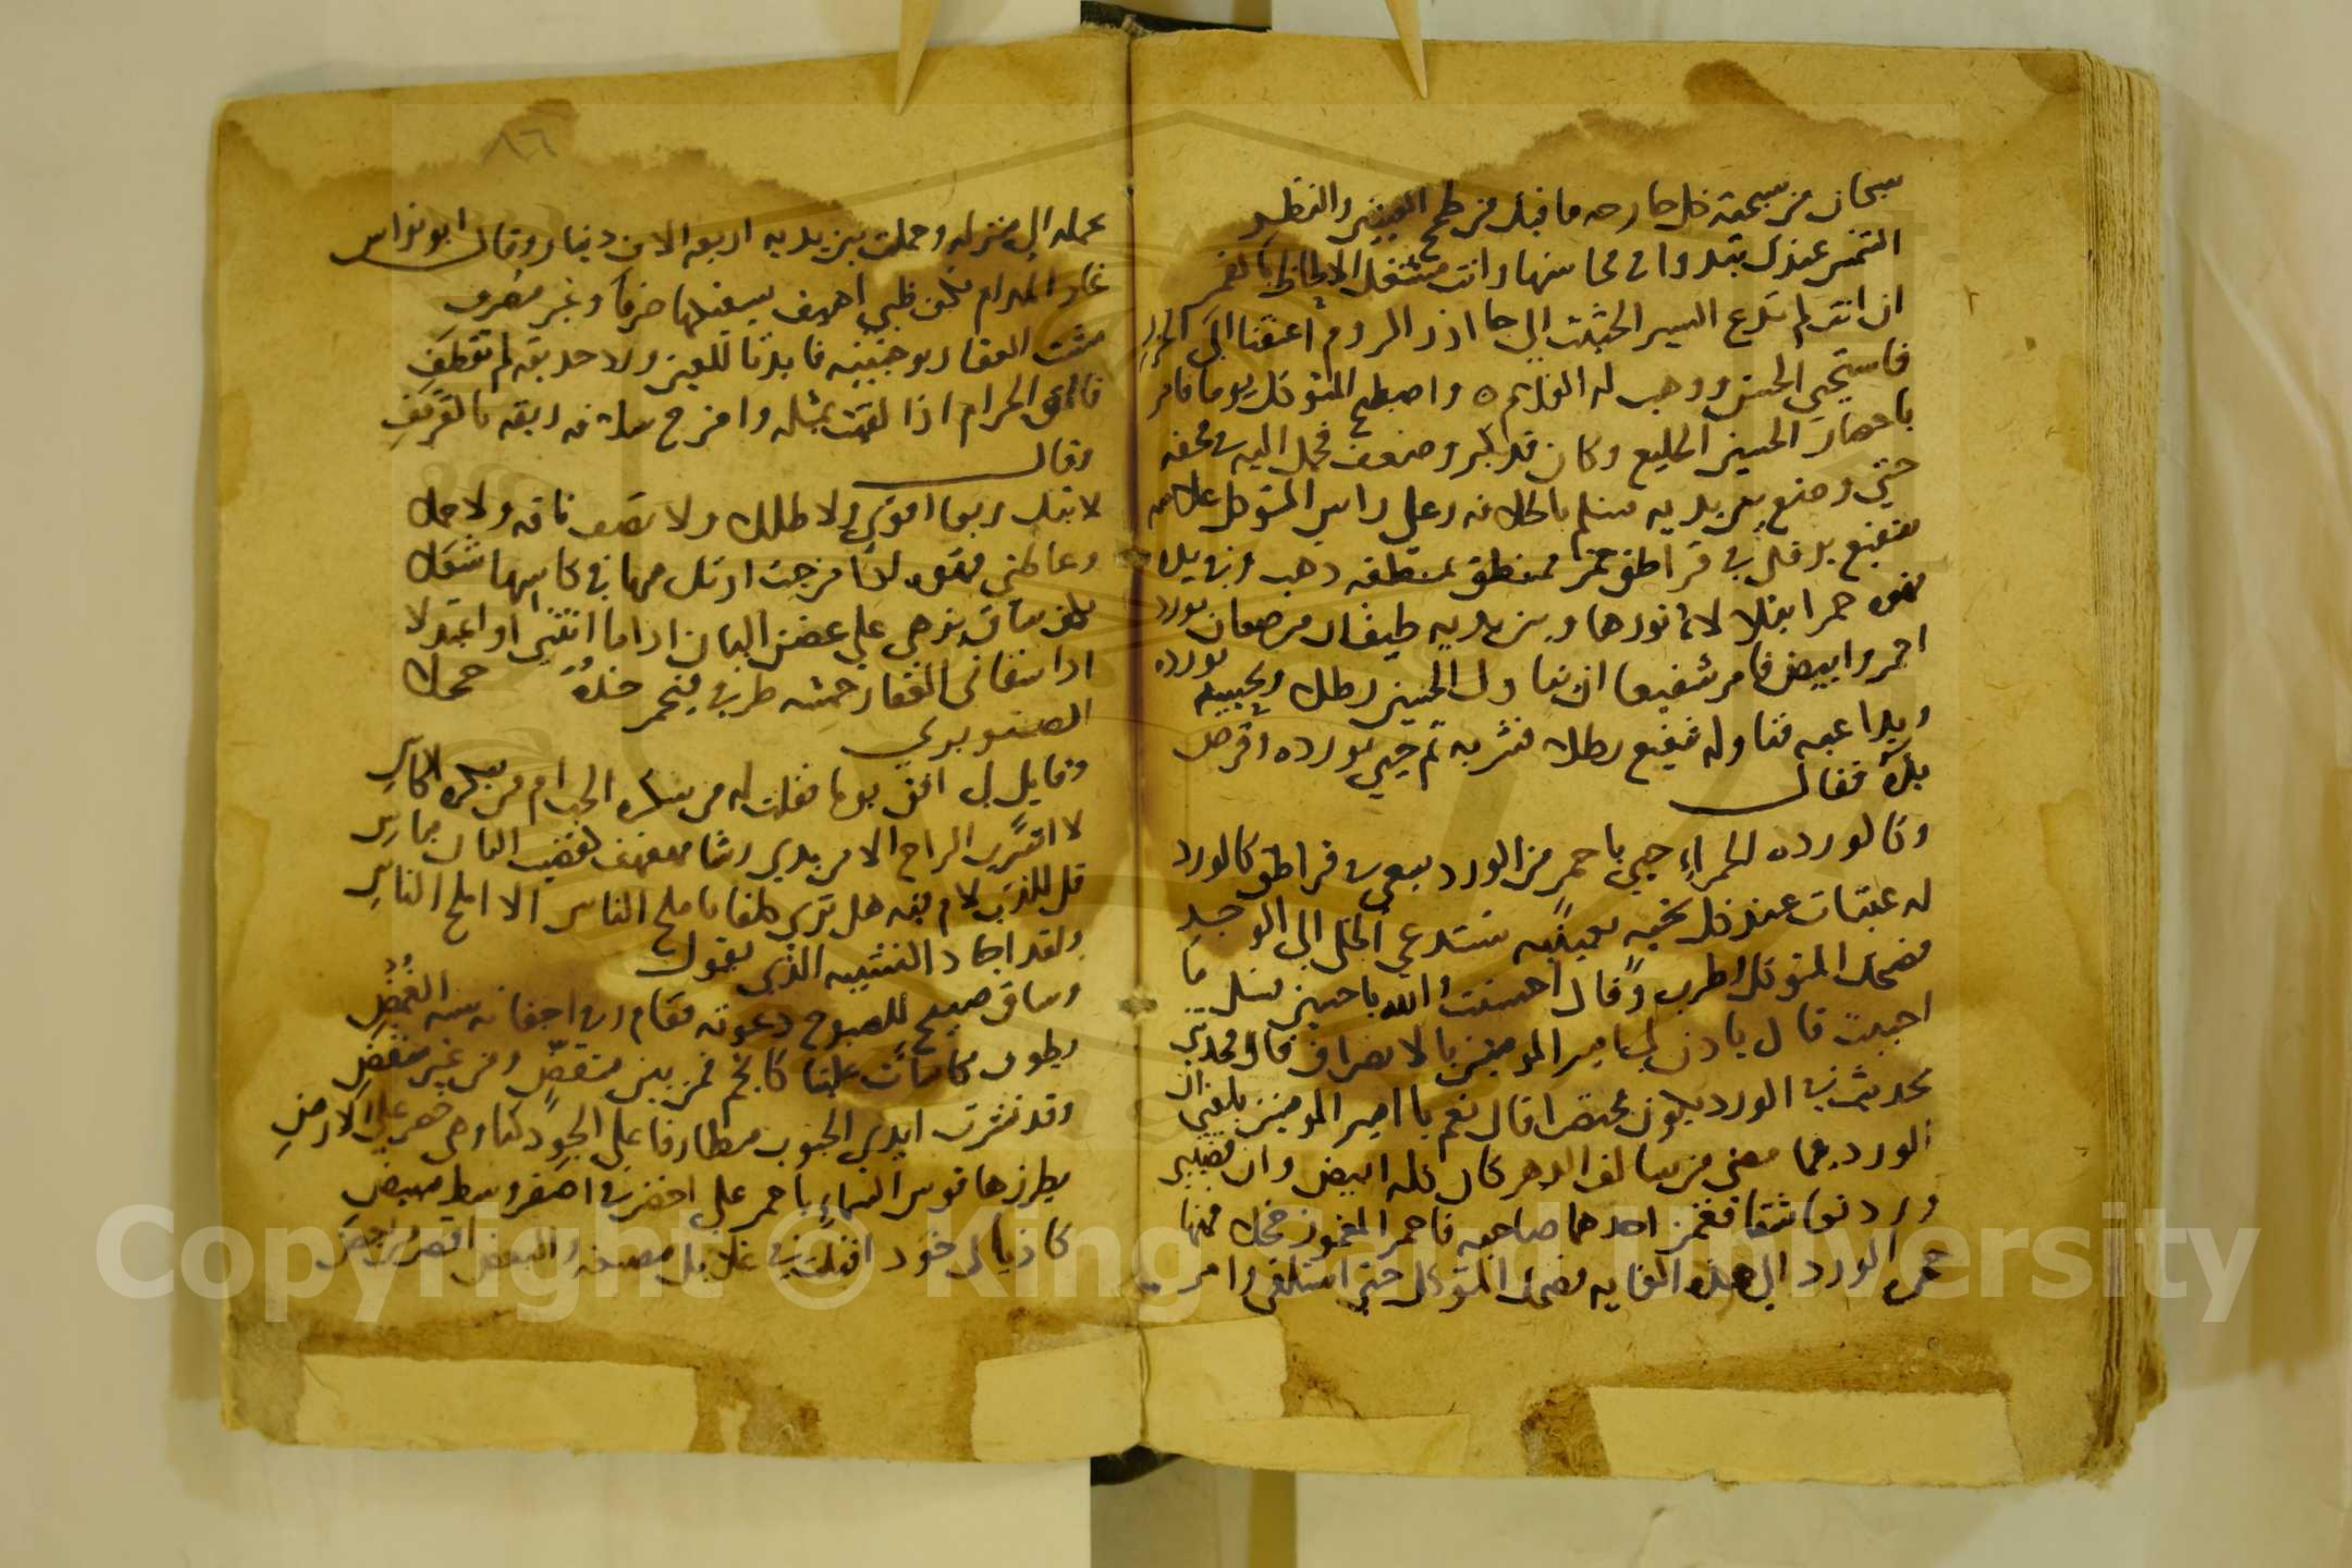 سبحان من سبحته كل جارحه ما فيك من طمح العينين والنظر
الشمس عندك تبدوا في محاسنها وانت مشتغل الالحاظ بالقمر
ان انت لم تدع السير الحثيث الى جاذر الروم اعتقنا الى الخزر
فاستحيى الحسن ووهب له الغلام واصطبح المتوكل يوما فامر
باحضار الحسين الخليع وكان قد كبر وضعف فحمل اليه في محفه
حتى وضع بين يديه فسلم بالخلافه وعلى راس المتوكل غلامه
شفيع يرفل في قراطق حمر ممنطق بمنطقه ذهب وفي يده
قهوه حمرا يتلالا نورها وبين يديه طبقان مرصعان بورد
احمر وابيض فامر شفيعا ان يناول الحسين رطلا ويحييه بورده
ويداعبه فناوله شفيع رطلا فشربه ثم حيى بورده وقرص
يده فقال
وكالورده الحمراء حيى باحمر من الورد يسعى في قراطق كالورد
له عبثات عند كل تحيه بعينيه تستدعي الخلى الى الوجد
فضحك المتوكل وطرب وقال احسنت والله يا حسين سل ما
احببت قال ياذن لي امير المومنين بالانصراف قال فحدثني
بحديث في الورد يكون مختصرا قال نعم يا امير المومنين بلغني ان
الورد فيما مضى من سالف الدهر كان كله ابيض وان قضيبي
ورد تعاشقا فغمز احدهما صاحبه فاحمر المغموز خجلا فمنها
حمرة الورد الى هذه الغايه فضحك المتوكل حتى استلقى وامر
٨٦
بحمله الى منزله وحملت بين يديه اربعه الاف دينار وقال ابو نواس
غاد المدام بكف ظبي اهيف يسقيكها صرفا وغير مصرف
مشت العقار بوجنتيه فابدتا للعين ورد حديقه لم تقطف
فالق الحرام اذا لقيت بمثله وامزج سلافه ريقه بالقرقف
وقال
لا تبك ربعا اقوى ولا طللا ولا تصف ناقه ولا جملا
وعاطني قهوه اذا مزجت اذكى مها في كاسها شعلا
بكف ساق يزهى على غصن البان اذا ما انثنى او اعتدلا
اذا سقاني العقار خمشه طرفي فيحمر خده خجلا
الصنوبري
وقايل لي افق يوما فقلت له من سكره الحب ام من سكره الكاس
لا اشرب الراح الا من يدي رشا مهفهف كقضيب البان مياس
قل للذى لام فيه هل ترى كلفا باملح الناس الا املح الناس
ولقد اجاد التشبيه الذي يقول
وساق صبيح للصبوح دعوته فقام وفي اجفانه سنه الغمض
يطوف بكاسات علينا كانجم فمن بين منقض ومن غير منقض
وقد نشرت ايدي الجنوب مطارفا على الجو دكنا وهى خضر على الارض
يطرزها قوس السماء باحمر على اخضر في اصفر وسط مبيض
كاذيال خود اقبلت في غلايل مصبغه والبعض اقصر من بعض